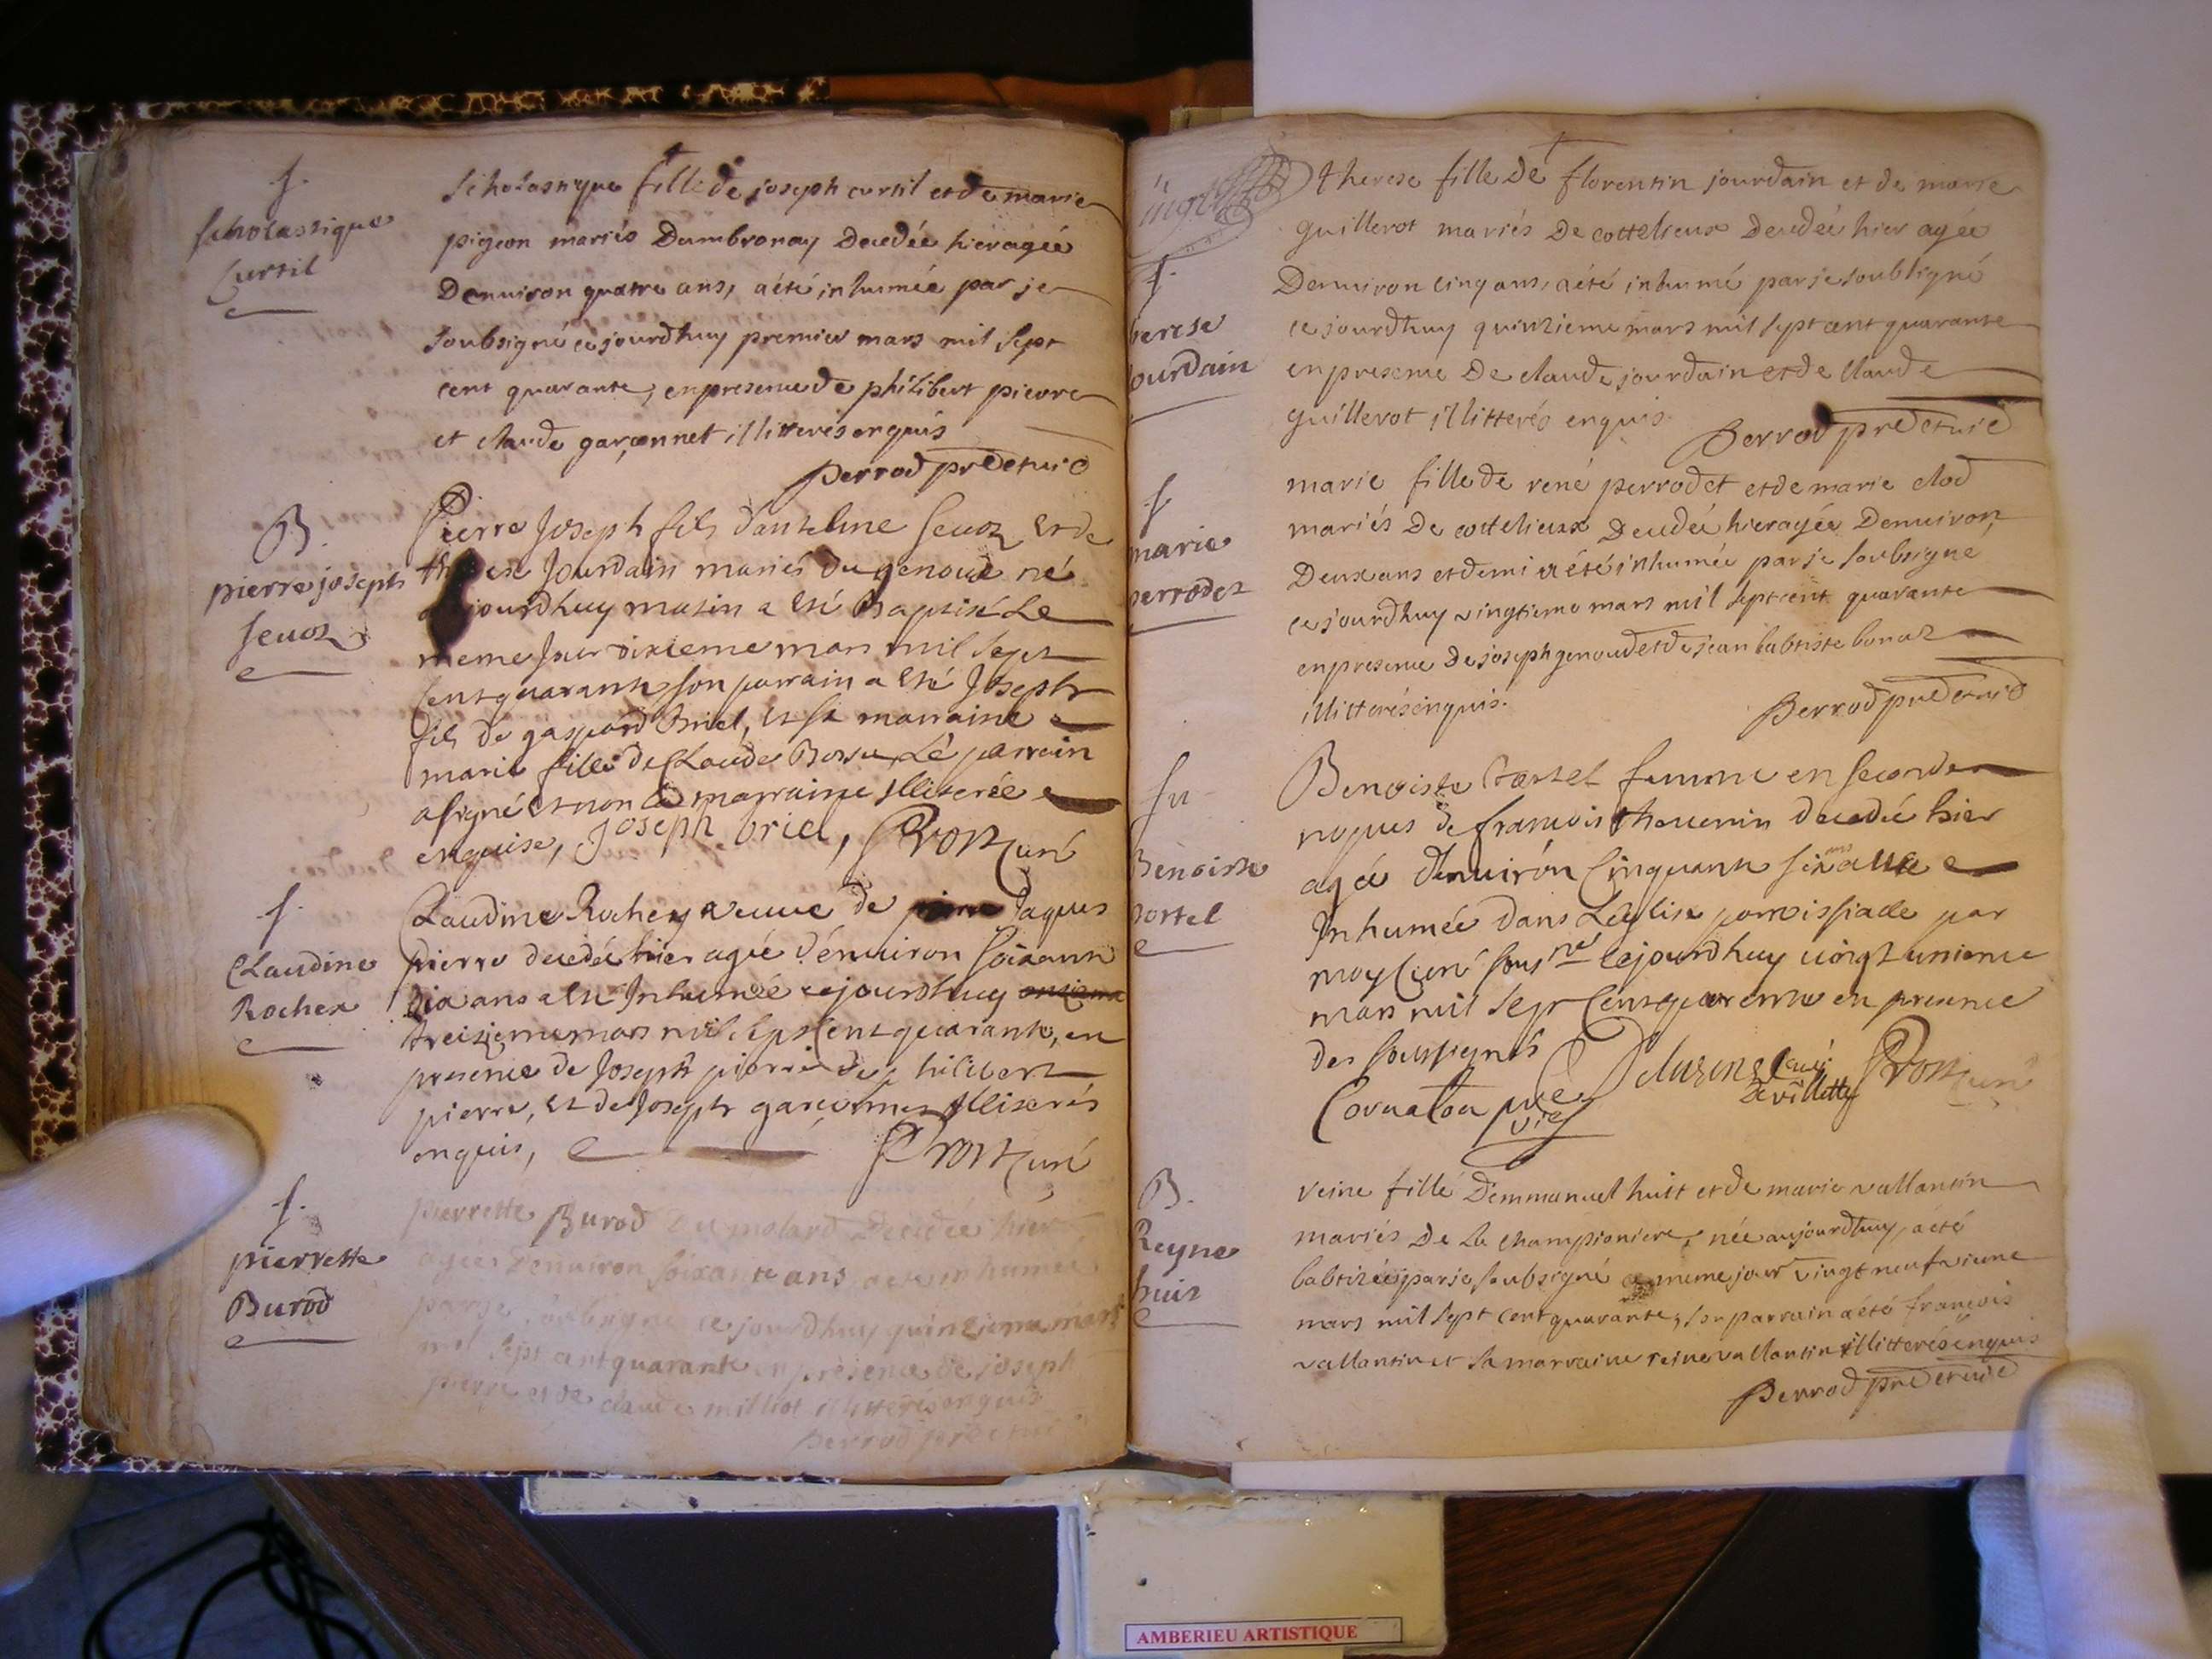 f.
scholastique
Curtil
scholastique fille de joseph curtil et de marie
pigeon mariés Dambronay Decedée hier agée
Denuiron quatre ans, a été inhumée par je
soubsigné cejourdhuy premier mars mil sept
cent quarante, en presence de philibert pierre
et claude garçonnet illitterés enquis
perrod pre et vic
B.
pierre joseph
seuoz
Pierre Joseph fils d'anthelme seuoz et de
Jourdain mariés du genoud né
jourdhuy matin a esté Baptisé Le
meme Jour dixieme mars mil sept
cent quarante son parrain a esté Joseph
fils de gaspard Briel, et sa marraine
marie fille de Claude Bossu Le parrain
a signé et non la marraine illiterée
enquise, Joseph briel, curé
f.
Claudine
Rochex
Claudine Rochex veuue de Jaques
pierre decedée hier agée d'enuiron soixante
dix ans a esté Inhumée cejourdhuy
treizieme mars mil sept cent quarante, en
presence de Joseph pierre de philibert
pierre, et de Joseph garconnet illiterés
enquis, curé
f.
pierrette
Burod
pierrette Burod du molard Decedée hier
agée Denuiron soixante ans a été inhumée
par je soubsigné ce jourdhuy quinzieme mars
mil sept cent quarante en presence de joseph
pierre et de claude milliot illitterés enquis
perrod pre et vic
therese fille de florentin jourdain et de marie
guillerot mariés De cottelieux Decedée hier agée
Denuiron cinq ans, a été inhumé par je soubsigné
ce jourdhuy quinzieme mars mil sept cent quarante
en presence De claude jourdain et de claude
guillerot illitterés enquis
perrod pre et vic
f.
herese
ourdain
marie fille de rené perrodet et de marie clod
mariés De cottelieux Decedée hier agée Denuiron
Deux ans et demi a été inhumée par je soubsigné
ce jourdhuy vingtieme mars mil sept cent quarante
en presence De joseph genoud et de jean babtiste bonaz
illitterés enquis.
perrod pre et vic
f
marie
perrodet
Benoiste femme en seconde
nopces de francois thouenin decedée hier
agée denuiron Cinquante six ans a esté
Inhumée dans Léglise paroissialle par
moy Curé sousné cejourdhuy vingt unieme
mars mil sept Cent quarante en presence
des soussignés
Cornaton pre vic curé de villette curé
fu
Benoiste
B.
Reyne
huit
reine fille D'emmanuel huit et de marie vallantin
mariés De La championiere, née aujourdhuy, a été
babtizée par je soubsigné ce meme jour vingt neufvieme
mars mil sept cent quarante, son parrain a été françois
vallantin et sa marraine reine vallantin illitterés enquis
perrod pre et vic
AMBERIEU ARTISTIQUE